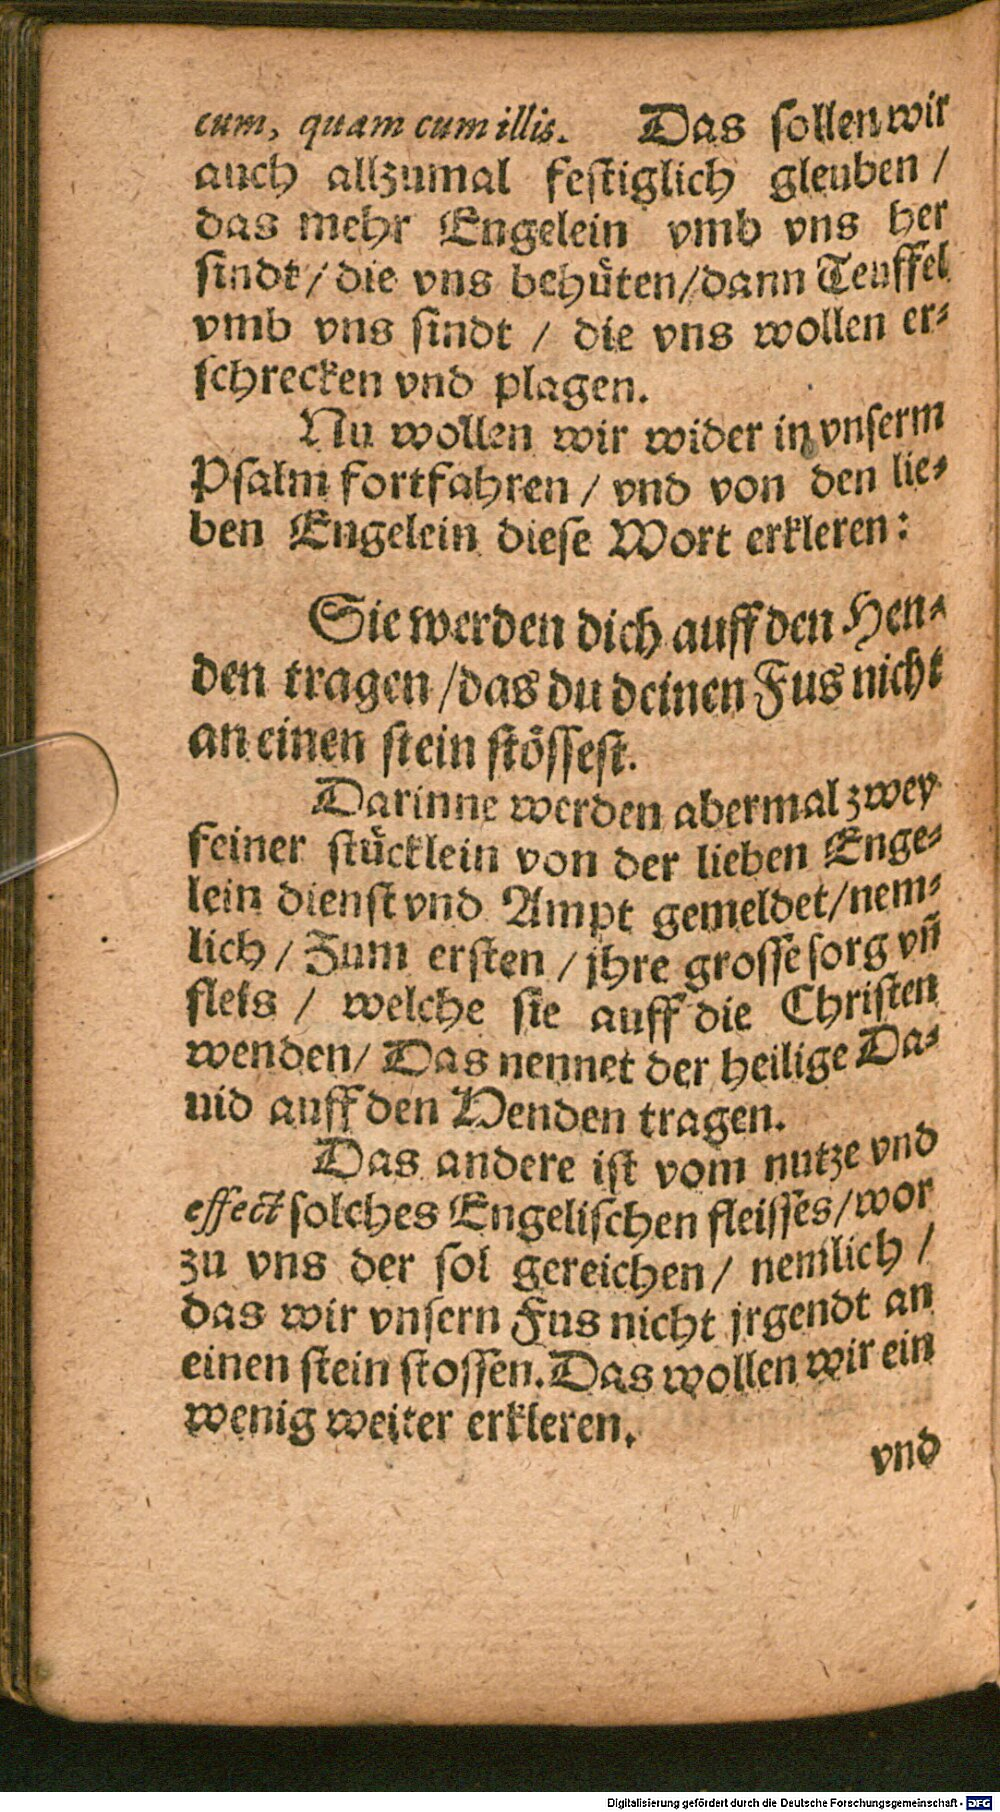 cum, quam cum illis. Das sollen wir
auch allzumal festiglich gleuben /
das mehr Engelein vmb vns her
sindt / die vns behüten / dann Teuffel
vmb vns sindt / die vns wollen er-
schrecken vnd plagen.
Nu wollen wir wider in vnserm
Psalm fortfahren / vnd von den lie-
ben Engelein diese Wort erkleren:
Sie werden dich auff den Hen-
den tragen / das du deinen Fus nicht
an einen stein stössest.
Darinne werden abermal zwey
feiner stücklein von der lieben Enge-
lein dienst vnd Ampt gemeldet / nem-
lich / Zum ersten / jhre grosse sorg vñ
fleis / welche sie auff die Christen
wenden / Das nennet der heilige Da-
uid auff den Henden tragen.
Das andere ist vom nutze vnd
effect solches Engelischen fleisses / wor
zu vns der sol gereichen / nemlich /
das wir vnsern Fus nicht jrgendt an
einen stein stossen. Das wollen wir ein
wenig weiter erkleren.
vnd
Digitalisierung gefördert durch die Deutsche Forschungsgemeinschaft - DFG